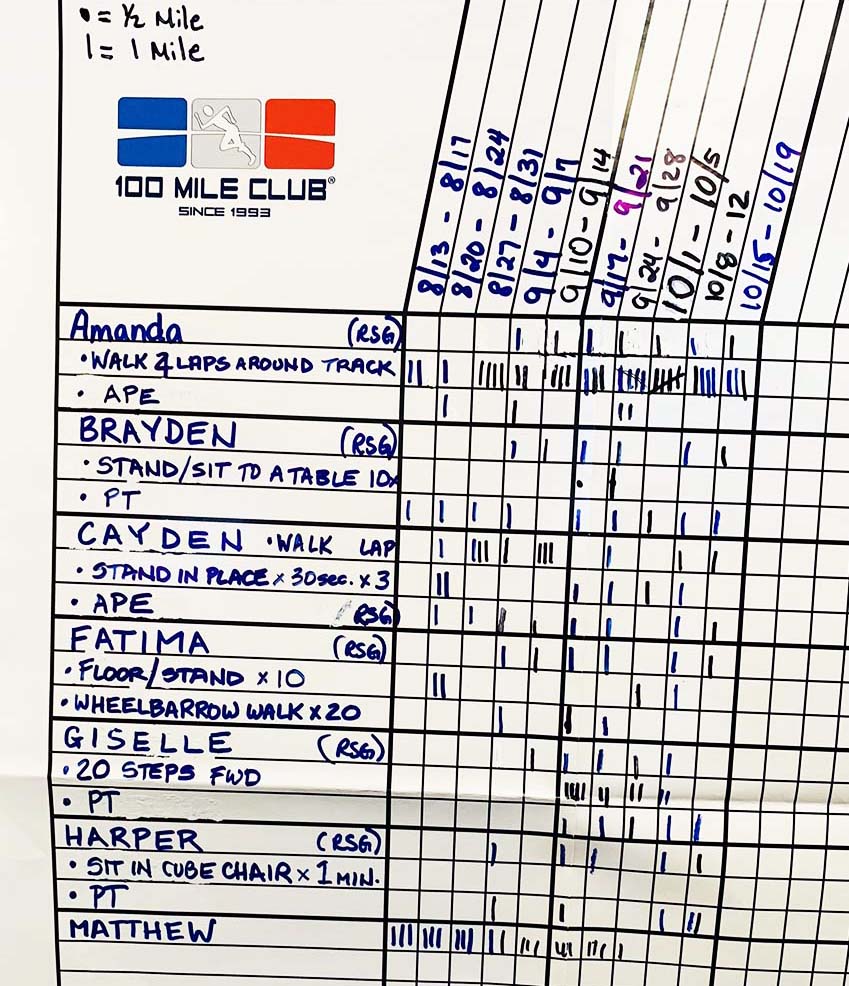 • = ½ Mile
| = 1 Mile
100 MILE CLUB®
SINCE 1993
8/13 - 8/17
8/20 - 8/24
8/27 - 8/31
9/4 - 9/7
9/10 - 9/14
9/17 - 9/21
9/24 - 9/28
10/1 - 10/5
10/8 - 12
10/15 - 10/19
Amanda (RSG)
• WALK 2 LAPS AROUND TRACK
• APE
BRAYDEN (RSG)
• STAND/SIT TO A TABLE 10x
• PT
CAYDEN • WALK LAP
• STAND IN PLACE x 30sec. x 3
• APE (RSG)
FATIMA (RSG)
• FLOOR/STAND x 10
• WHEELBARROW WALK x 20
GISELLE (RSG)
• 20 STEPS FWD
• PT
HARPER (RSG)
• SIT IN CUBE CHAIR x 1 MIN.
• PT
MATTHEW